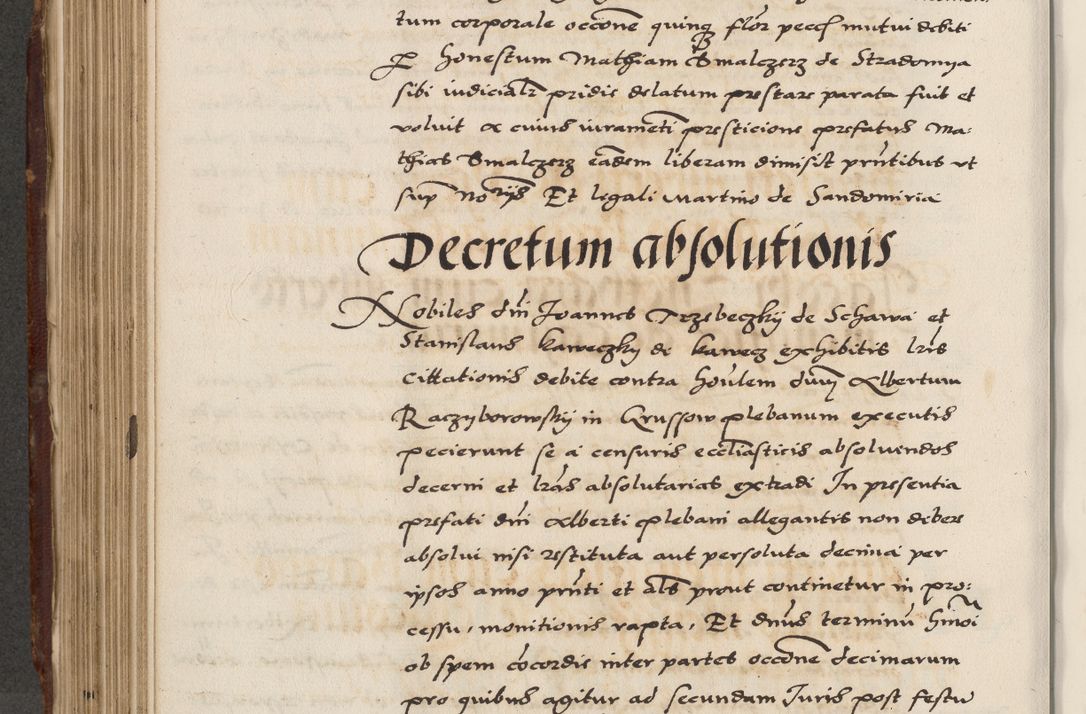 tum corporale occōne quinq flor pecc mutui debiti
per honestum Mathiam Smalczerz de Stradomya
sibi iudicialr pridie delatum prestare parata fuit et
voluit a cuius iuramēti presticione prefatus Ma:
thias Smalczerz eādem liberam dimisit prñtibus vt
sup Noriis Et legali Martino de Sandomiria
Decretum absolutionis
Nobiles dñi Joannes Trzebeczkij de Schawa et
Stanislaus kaweczky de kawecz exhibitis lrīs
Cittationis debite contra hoñlem dnum Albertum
Raczyborowskij in Grussow plebanum executis
pecierunt se a censuris eccliasticis absoluendos
decerni et lrās absolutarias extradi In presentia
prefati dñi Alberti plebani allegantis non debere
absolui nisi restituta aut persoluta decima per
ipsos anno prñti et als prout continetur in pro:
cessu, monitionis rapta, Et dnus terminū hmoi
ob spem cōcordie inter partes occōne decimarum
pro quibus agitur ad secundam Juris post festū